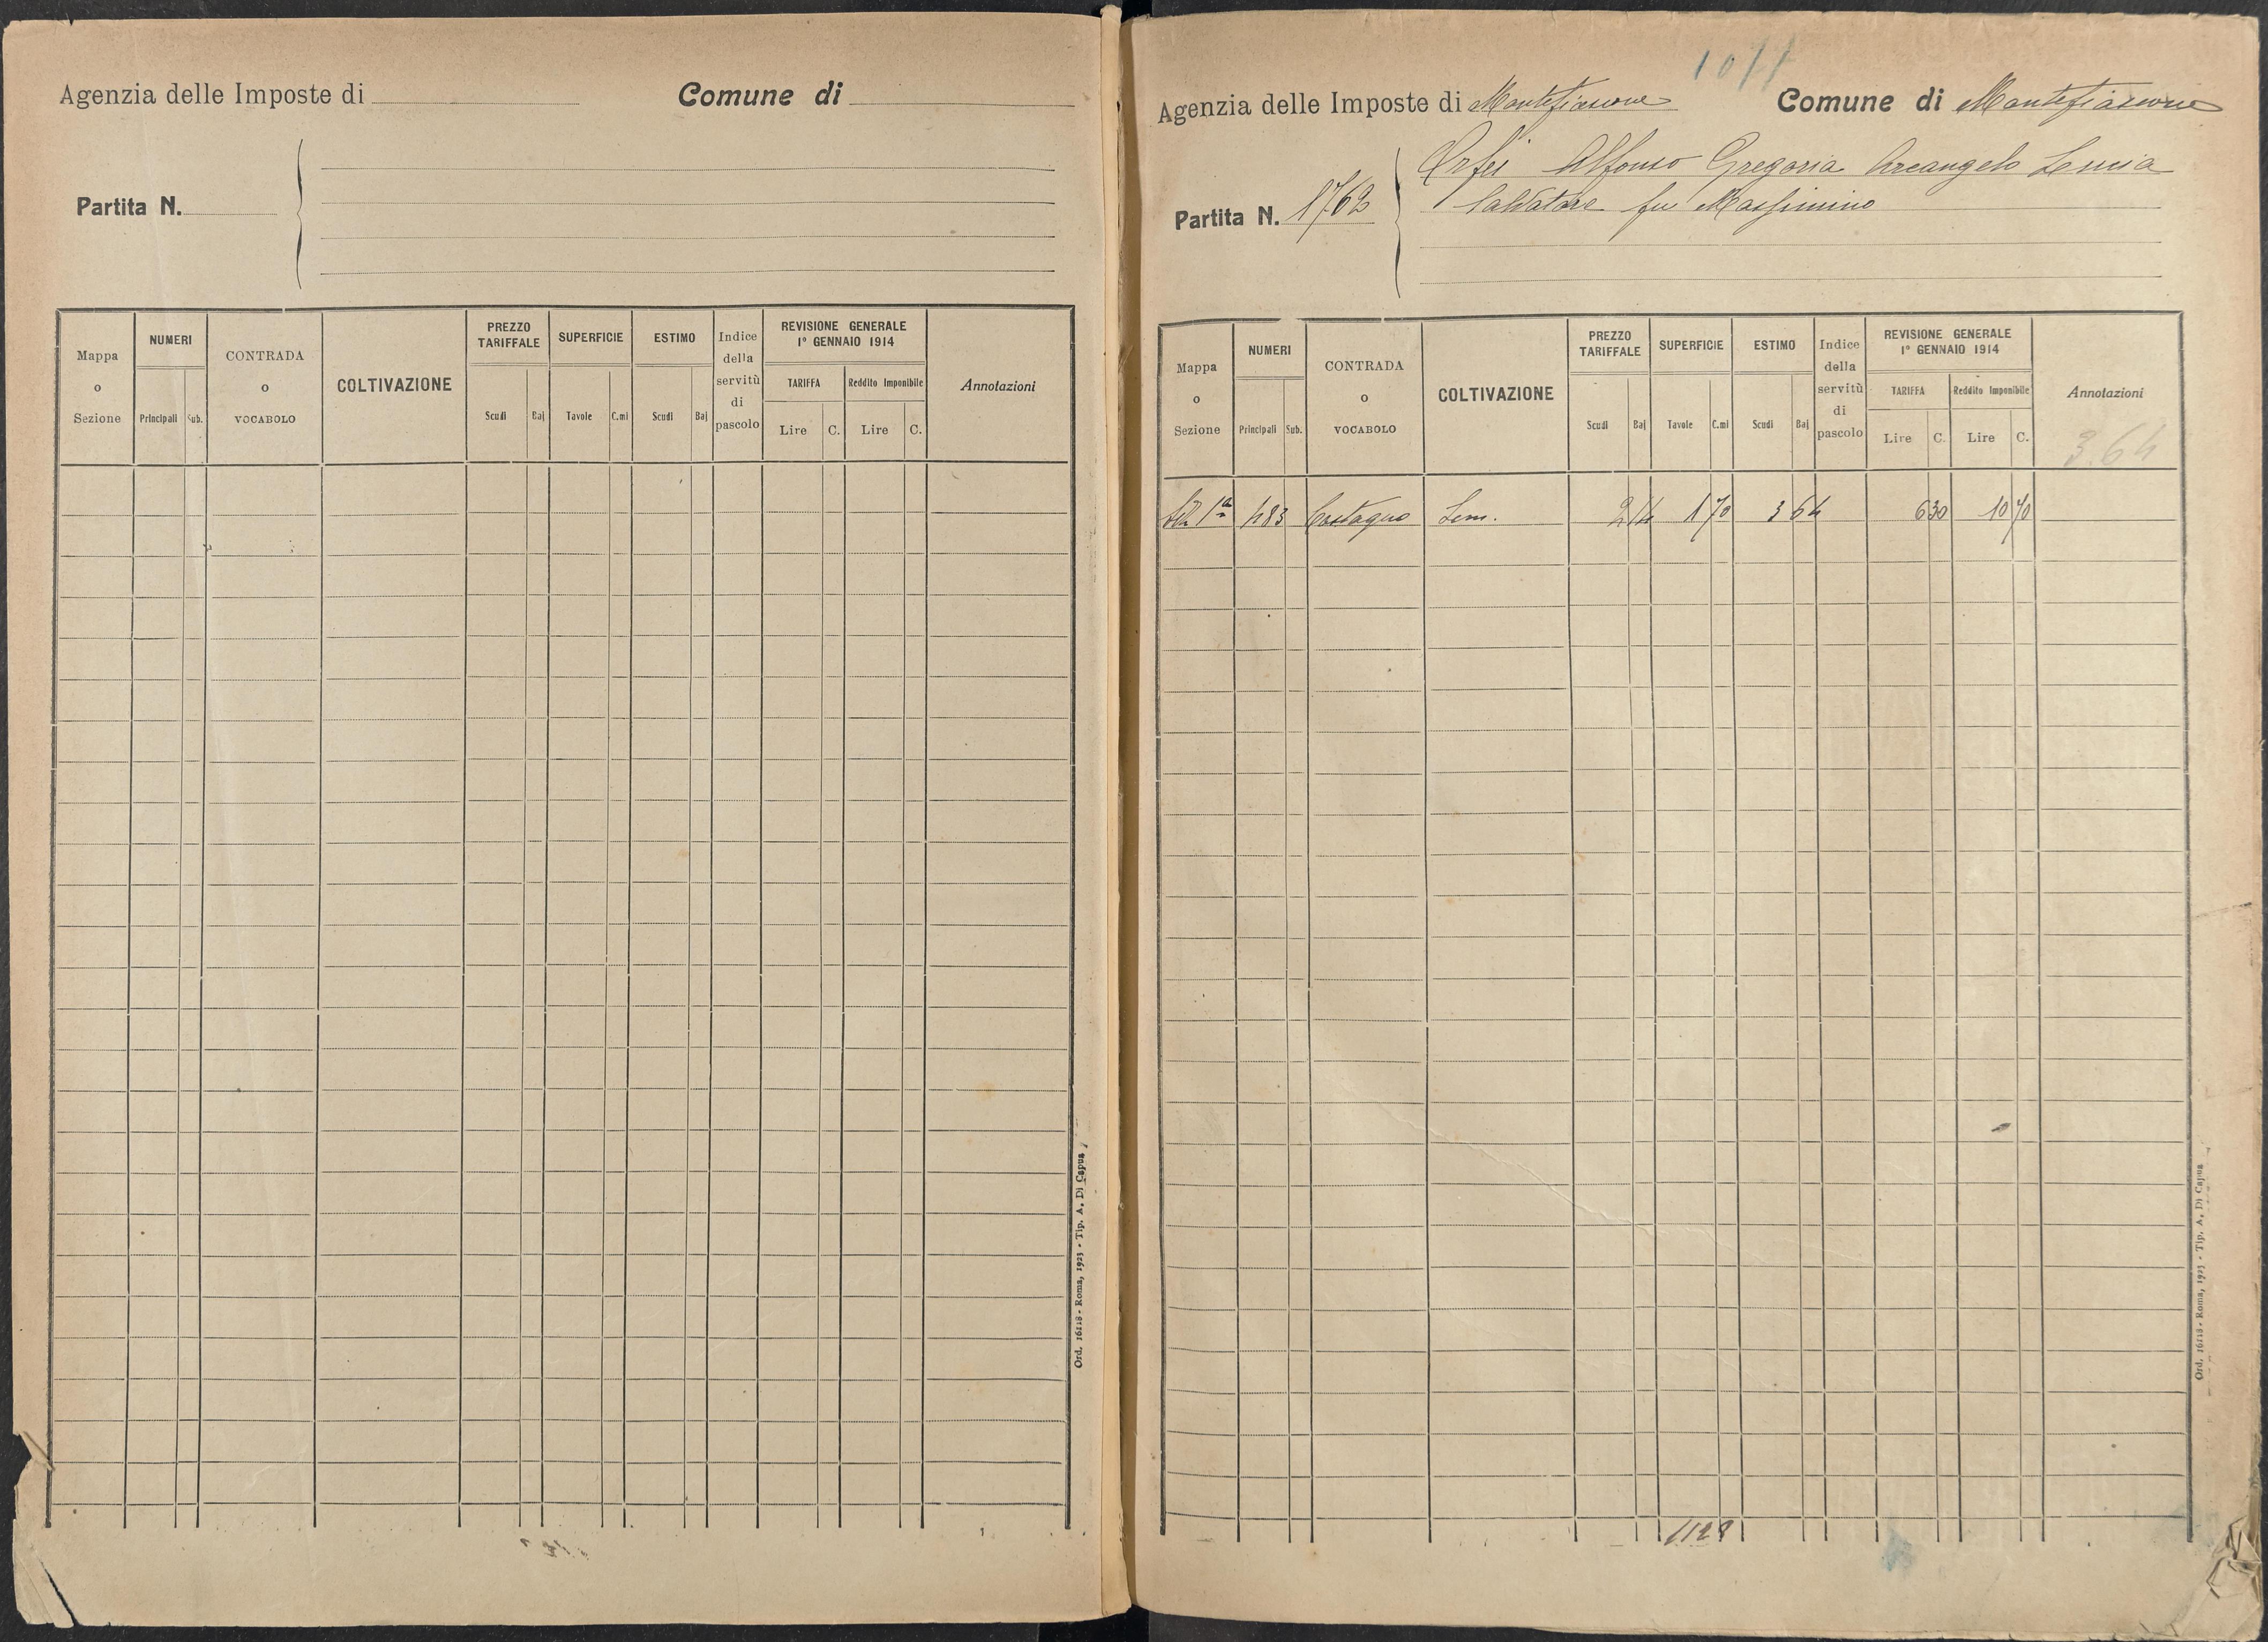 Agenzia delle Imposte di
Comune di
Partita N.
Mappa o Sezione
NUMERI
Principali
Sub.
CONTRADA o VOCABOLO
COLTIVAZIONE
PREZZO TARIFFALE
Scudi
Baj
SUPERFICIE
Tavole
C.mi
ESTIMO
Scudi
Baj
Indice della servitù di pascolo
REVISIONE GENERALE
1° GENNAIO 1914
TARIFFA
Lire
C.
Reddito Imponibile
Lire
C.
Annotazioni
Ord. 16118 - Roma, 1923 - Tip. A. Di Capua
Agenzia delle Imposte di Montefiascone
Comune di Montefiascone
Partita N. 1762
Orfei Alfonso Gregoria Arcangelo
Salvatore fu Massimino
Mappa o Sezione
NUMERI
Principali
Sub.
CONTRADA o VOCABOLO
COLTIVAZIONE
PREZZO TARIFFALE
Scudi
Baj
SUPERFICIE
Tavole
C.mi
ESTIMO
Scudi
Baj
Indice della servitù di pascolo
REVISIONE GENERALE
1° GENNAIO 1914
TARIFFA
Lire
C.
Reddito Imponibile
Lire
C.
Annotazioni
3.64
1ª 483 Castagno Sem. 2 14 1 70 3 64 6 30 10 70
1128
Ord. 16118 - Roma, 1923 - Tip. A. Di Capua